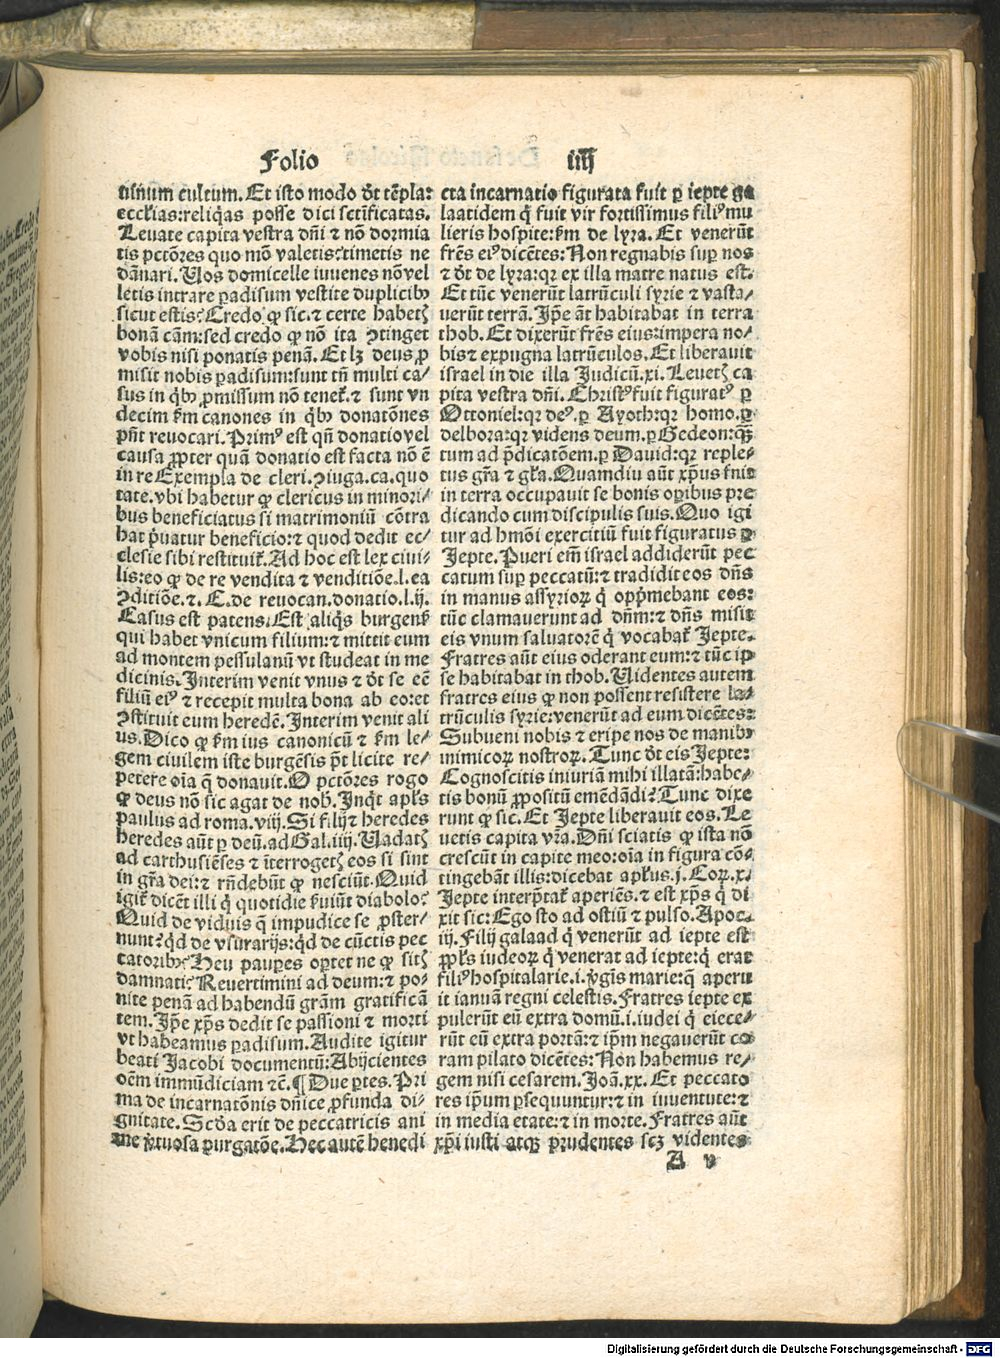 Folio iiij
uinum cultum. Et isto modo dr̄t tēpla:
eccl̄ias:reliq̄as posse dici sctīficatas.
Leuate capita vestra dn̄i ⁊ nō dormia
tis pctōres quo mō valetis:timetis ne
dānari. Uos domicelle iuuenes nō vel
letis intrare ꝑadisum vestite duplicibꝰ
sicut estis? Credo ꝙ sic.⁊ certe habetꝭ
bonā cām:sed credo ꝙ nō ita ꝯtinget
vobis nisi ponatis penā. Et lꝫ deus ꝓ
misit nobis ꝑadisum:sunt tn̄ multi ca/
sus in qͥbꝰ ꝓmissum nō tenet̄.⁊ sunt vn
decim ẜm canones in qͥbꝰ donatōnes
pn̄t reuocari. Primꝰ est qn̄ donatio vel
causa ꝓpter quā donatio est facta nō ē
in re Exempla de cleri. ꝯiuga.ca.quo
tate.vbi habetur ꝙ clericus in minori/
bus beneficiatus si matrimoniū cōtra
hat p̄uatur beneficio:⁊ quod dedit ec/
clesie sibi restituit̄. Ad hoc est lex ciui/
lis:eo ꝙ de re vendita ⁊ venditiōe.l.ea
ꝯditiōe.⁊. C.de reuocan.donatio.l.ij.
Casus est patens. Est aliq̄s burgens̄
qui habet vnicum filium:⁊ mittit eum
ad montem pessulanū vt studeat in me
dicinis. Interim venit vnus ⁊ dt̄ se eē
filiū eiꝰ ⁊ recepit multa bona ab eo:et
ꝯstituit eum heredē. Interim venit ali
us. Dico ꝙ ẜm ius canonicū ⁊ ẜm le/
gem ciuilem iste burgēsis pt̄ licite re/
petere oīa q̄ donauit. O pctōres rogo
ꝙ deus nō sic agat de nob̄. Inqͥt apl̄s
paulus ad roma.viij. Si filij ⁊ heredes
heredes aūt ꝑ deū. ad Gal.iiij. Uadatꝭ
ad carthusiēses ⁊ īterrogetꝭ eos si sint
in gr̄a dei:⁊ rn̄debūt ꝙ nesciūt. Quid
igit̄ dicēt illi q̄ quotidie ẜuiūt diabolo?
Quid de viduis q̄ impudice se ꝓster/
nunt? qͥd de vsurarijs:qͥd de cūctis pec
catoribꝰ? Heu pauꝑes oꝑtet ne ꝙ sitꝭ
damnati? Reuertimini ad deum:⁊ po/
nite penā ad habendū grām gratificā
tem. Ip̄e xp̄s dedit se passioni ⁊ morti
vt habeamus ꝑadisum. Audite igitur
beati Jacobi documentū: Abijcientes
oēm immūdiciam ⁊c̄. ¶ Due ꝑtes. Pri
ma de incarnatōnis dn̄ice ꝓfunda di/
gnitate. Scd̄a erit de peccatricis ani
me v̄tuosa purgatōe. Hec autē benedi
cta incarnatio figurata fuit ꝑ iepte ga
laatidem q̄ fuit vir fortissimus filiꝰ mu
lieris hospite:ẜm de lyra. Et venerūt
fr̄es eiꝰ dicētes: Non regnabis suꝑ nos
⁊ dt̄ de lyra:qr̄ ex illa matre natus est.
Et tūc venerūt latrūculi syrie ⁊ vasta/
uerūt terrā. Ip̄e āt habitabat in terra
thob. Et dixerūt fr̄es eius:impera no/
bis ⁊ expugna latrūculos. Et liberauit
israel in die illa Judicū.xi. Leuetꝭ ca
pita vestra dn̄i. Christꝰ fuit figuratꝰ ꝑ
Ottoniel:qr̄ deꝰ.ꝑ Ayoth:qr̄ homo.ꝑ
delbora:qr̄ videns deum.ꝑ Gedeon:
tum ad p̄dicatōem.ꝑ Dauid:qr̄ reple/
tus gr̄a ⁊ gl̄a. Quamdiu aūt xp̄us fuit
in terra occupauit se bonis oꝑibus pre
dicando cum discipulis suis. Quo igi
tur ad hmōi exercitiū fuit figuratus ꝑ
Jepte. Pueri em̄ israel addiderūt pec
catum suꝑ peccatū:⁊ tradidit eos dn̄s
in manus assyrioꝝ q̄ opp̄mebant eos:
tūc clamauerunt ad dn̄m:⁊ dn̄s misit
eis vnum saluatorē q̄ vocabat̄ Jepte.
Fratres aūt eius oderant eum:⁊ tūc ip
se habitabat in thob. Uidentes autem
fratres eius ꝙ non possent resistere la/
trūculis syrie:venerūt ad eum dicētes:
Subueni nobis ⁊ eripe nos de manibꝰ
inimicoꝝ nostroꝝ. Tunc dt̄ eis Jepte:
Cognoscitis iniuriā mihi illatā:habe/
tis bonū ꝓpositū emēdādi? Tunc dixe
runt ꝙ sic. Et Jepte liberauit eos. Le
uetis capita vr̄a. Dn̄i sciatis ꝙ ista nō
crescūt in capite meo:oīa in figura cō/
tingebāt illis:dicebat apl̄us.j. Coꝝ.x.
Jepte interp̄tat̄ aperiēs.⁊ est xp̄s q̄ di
xit sic: Ego sto ad ostiū ⁊ pulso. Apoc.
iij. Filij galaad q̄ venerūt ad iepte est
ppl̄s iudeoꝝ q̄ venerat ad iepte:q̄ erat
filiꝰ hospitalarie.i.v̄gīs marie:q̄ aperu
it ianuā regni celestis. Fratres iepte ex
pulerūt eū extra domū.i.iudei q̄ eiece/
rūt eū extra portā:⁊ ip̄m negauerūt co
ram pilato dicētes: Non habemus re/
gem nisi cesarem. Joā.xx. Et peccato
res ip̄um ꝑsequuntur:⁊ in iuuentute:⁊
in media etate:⁊ in morte. Fratres aūt
xp̄i iusti atqꝫ prudentes scꝫ videntes
A v
Digitalisierung gefördert durch die Deutsche Forschungsgemeinschaft - DFG